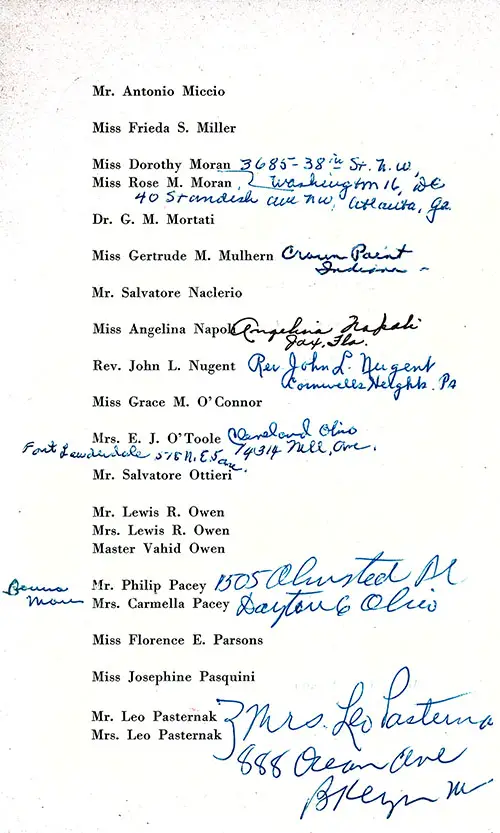 Mr. Antonio Miccio
Miss Frieda S. Miller
Miss Dorothy Moran 3685-38th St. N.W.
Miss Rose M. Moran Washington 16, DC
40 Standish Ave NW, Atlanta, Ga.
Dr. G. M. Mortati
Miss Gertrude M. Mulhern Crown Point
Indiana
Mr. Salvatore Naclerio
Miss Angelina Napoli Angelina Napoli
Jax, Fla.
Rev. John L. Nugent Rev John L. Nugent
Cornwells Heights. Pa
Miss Grace M. O'Connor
Mrs. E. J. O'Toole Cleveland Ohio
Fort Lauderdale N.E. 5 Ave.
Mr. Salvatore Ottieri
Mr. Lewis R. Owen
Mrs. Lewis R. Owen
Master Vahid Owen
Mr. Philip Pacey 1505 Olmsted Pl
Mrs. Carmella Pacey Dayton 6 Ohio
Miss Florence E. Parsons
Miss Josephine Pasquini
Mr. Leo Pasternak Mrs. Leo Pasterna
Mrs. Leo Pasternak
888 Ocean Ave
BKlyn